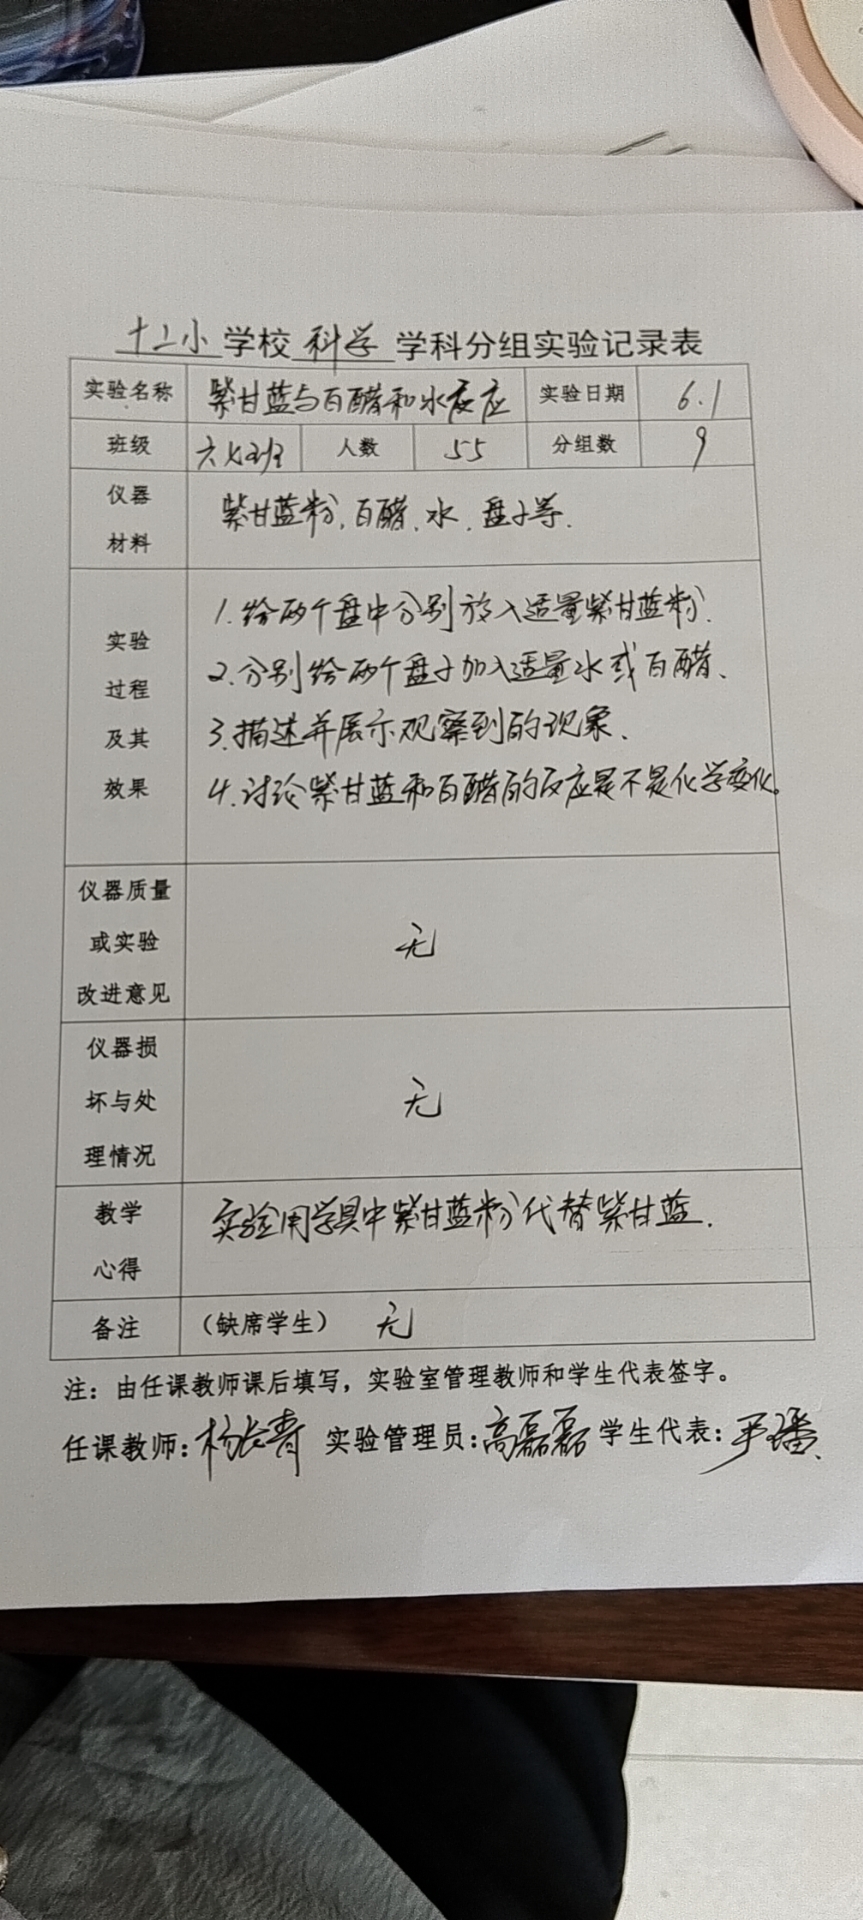 十二小学校科学学科分组实验记录表
实验名称 紫甘蓝与白醋和水反应 实验日期 6.1
班级 六七班 人数 55 分组数 9
仪器
材料
紫甘蓝粉、白醋、水、盘子等.
实验
过程
及其
效果
1.给两个盘中分别放入适量紫甘蓝粉.
2.分别给两个盘子加入适量水或白醋、
3.描述并展示观察到的现象、
4.讨论紫甘蓝和白醋的反应是不是化学变化。
仪器质量
或实验
改进意见
无
仪器损
坏与处
理情况
无
教学
心得
实验用学具中紫甘蓝粉代替紫甘蓝.
备注 (缺席学生) 无
注：由任课教师课后填写，实验室管理教师和学生代表签字。
任课教师：杨长青 实验管理员：高磊磊 学生代表：